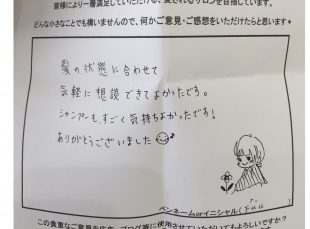 皆様により一層満足していただける、愛されるサロンを目指しています。
どんな小さなことでも構いませんので、何かご意見・ご感想をいただけたらと思います＊
髪の状態に合わせて
気軽に相談できてよかったです。
シャンプーも、すごく気持ちよかったです!
ありがとうございました
ペンネームorイニシャル( Fuu
この貴重なご意見を広告、ブログ等に使用させていただいてもよろしいですか?